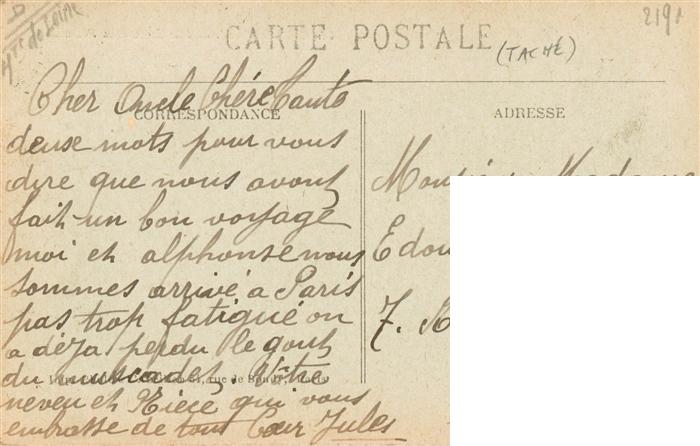 Hte de Seine
2191
CARTE POSTALE
(TACHÉ)
Cher Oncle Chére Tante
CORRESPONDANCE
deux mots pour vous
dire que nous avont
fait un bon voyage
moi et alphonse nous
sommes arrivé a Paris
pas trop fatigué on
a déja perdu le gout
du muscadet. Votre
rue de
neveu et Nièce qui vous
embrasse de tout Cœur Jules
ADRESSE
Monsieur Madame
Edou
7. R